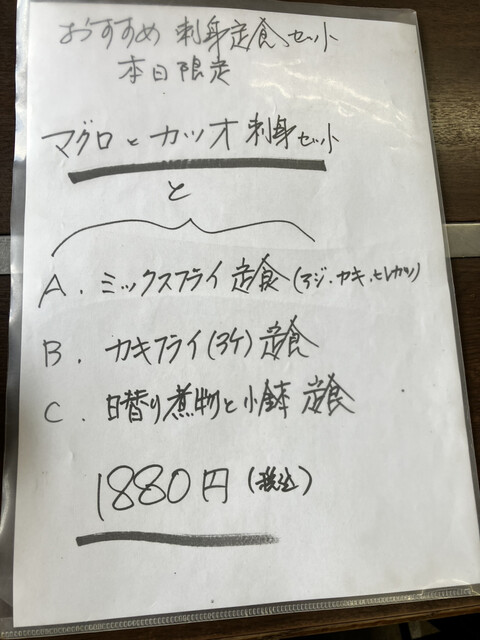 おすすめ 刺身定食セット
本日限定
マグロとカツオ刺身セット
と
A. ミックスフライ定食(アジ・カキ・ヒレカツ)
B. カキフライ(3ケ)定食
C. 日替り煮物と小鉢 定食
1880円(税込)